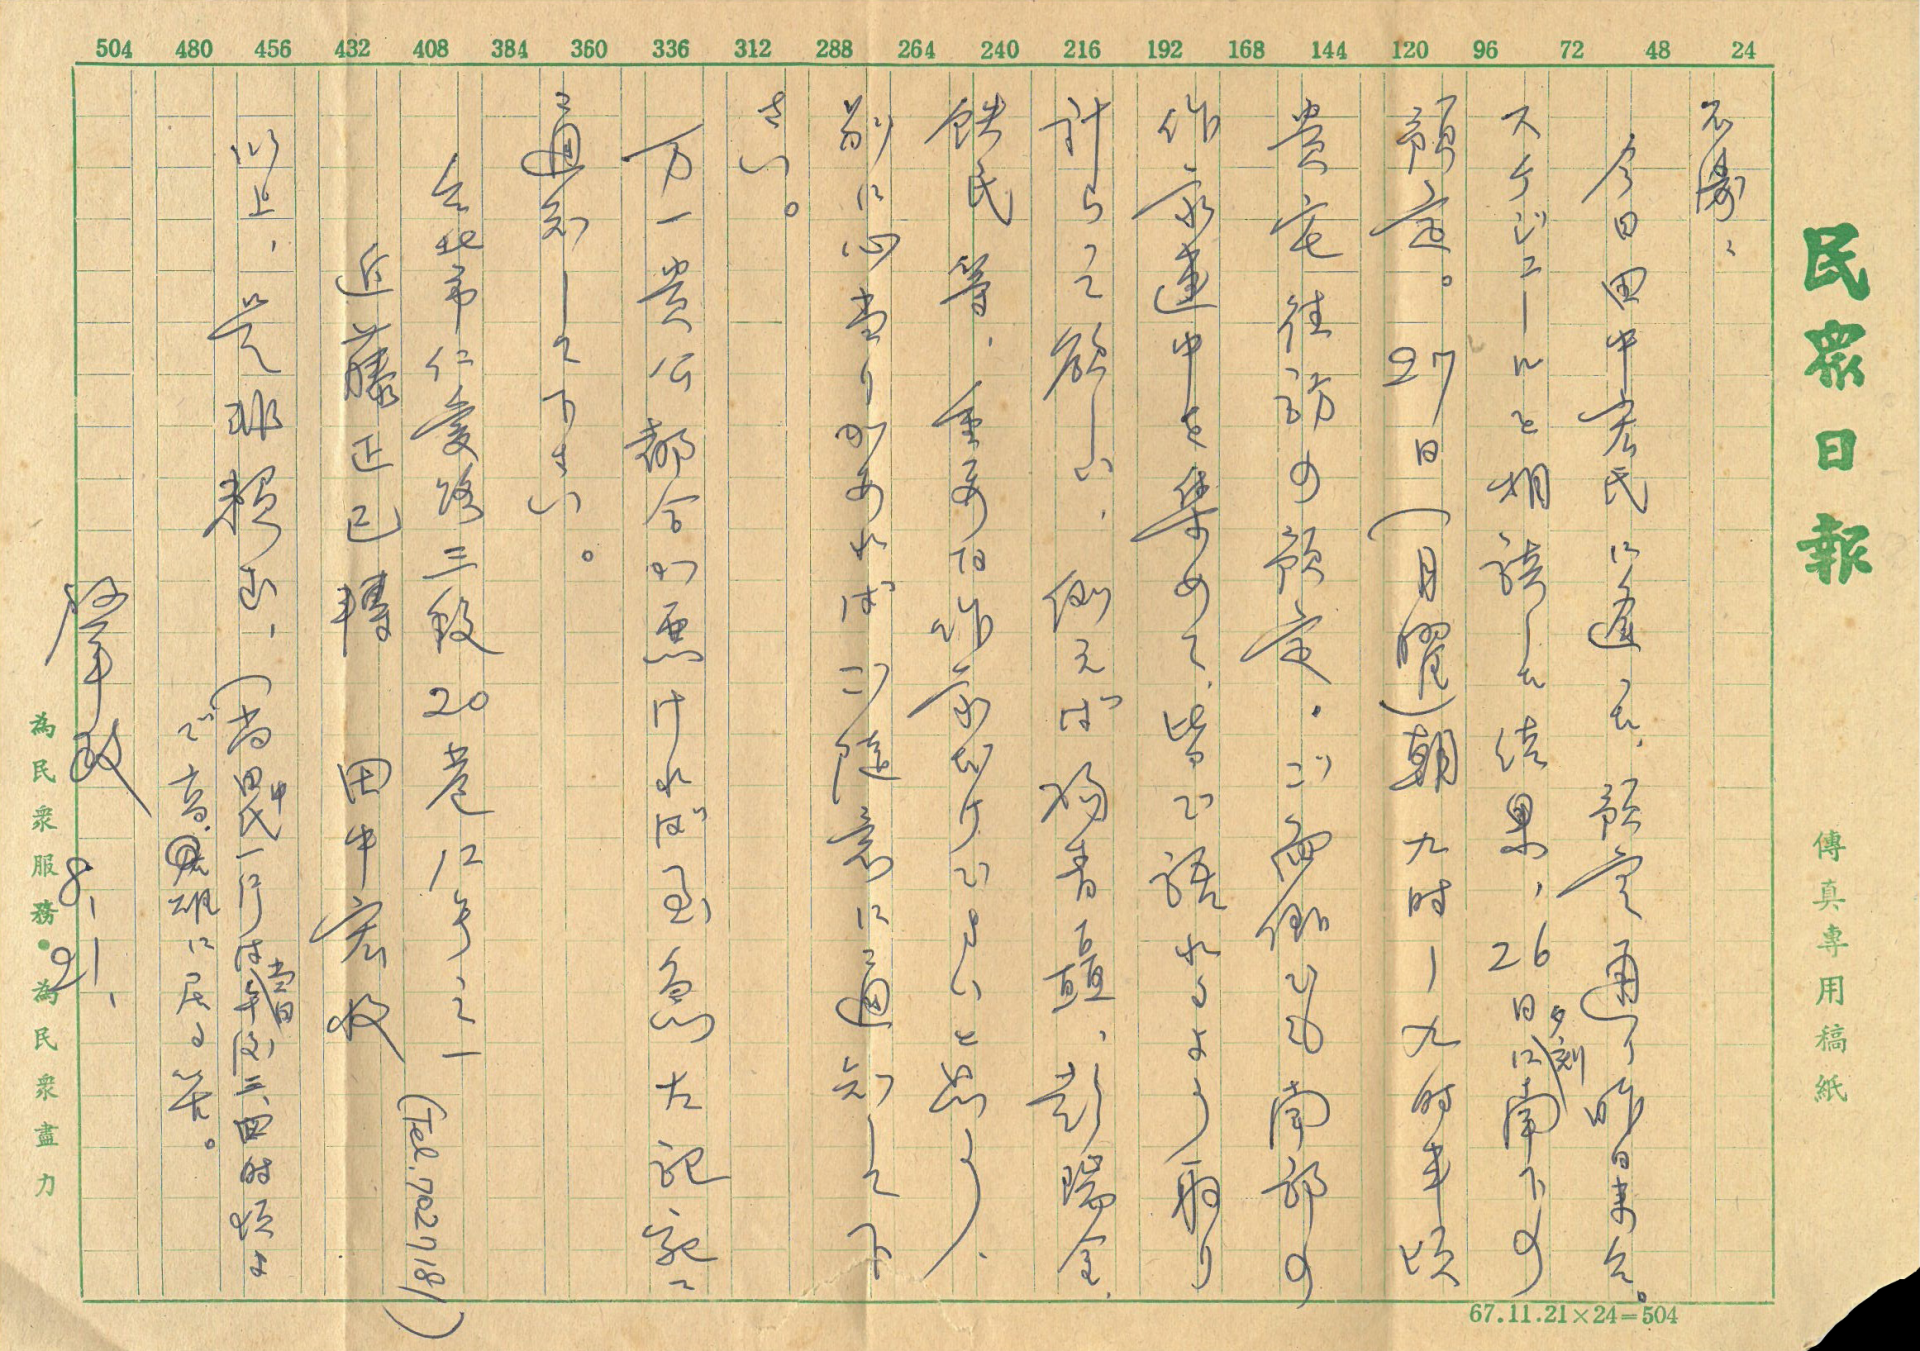 民眾日報
傳真專用稿紙
24 48 72 96 120 144 168 192 216 240 264 288 312 336 360 384 408 432 456 480 504
今日田中宏氏に逢った、予定通り昨日来台。
スケジュールと相談した結果、26日夕刻に南下の
預定。27日(月曜)朝九时ー九时半頃
貴宅往訪の預定.ご面倒でも南部の
作家連中を集めて、皆で語れるよう取り
計らって欲しい、例えば楊青矗、彭瑞金、
鉄民等、重要な作家だけでよいと思う、
別に心当りがあれば ご随意に通知して下
さい。
万一貴公都合が悪ければ至急左記宛に
通知して下さい。
台北市仁愛路三段20巷12号之一
(Tel.7027181)
近藤正己轉 田中宏收
以上、是非頼む、(尚田中氏一行は当日午後三、四时頃ま
で高雄に居る筈。
肇政
8.21.
為民眾服務•為民眾盡力
67.11.21×24=504